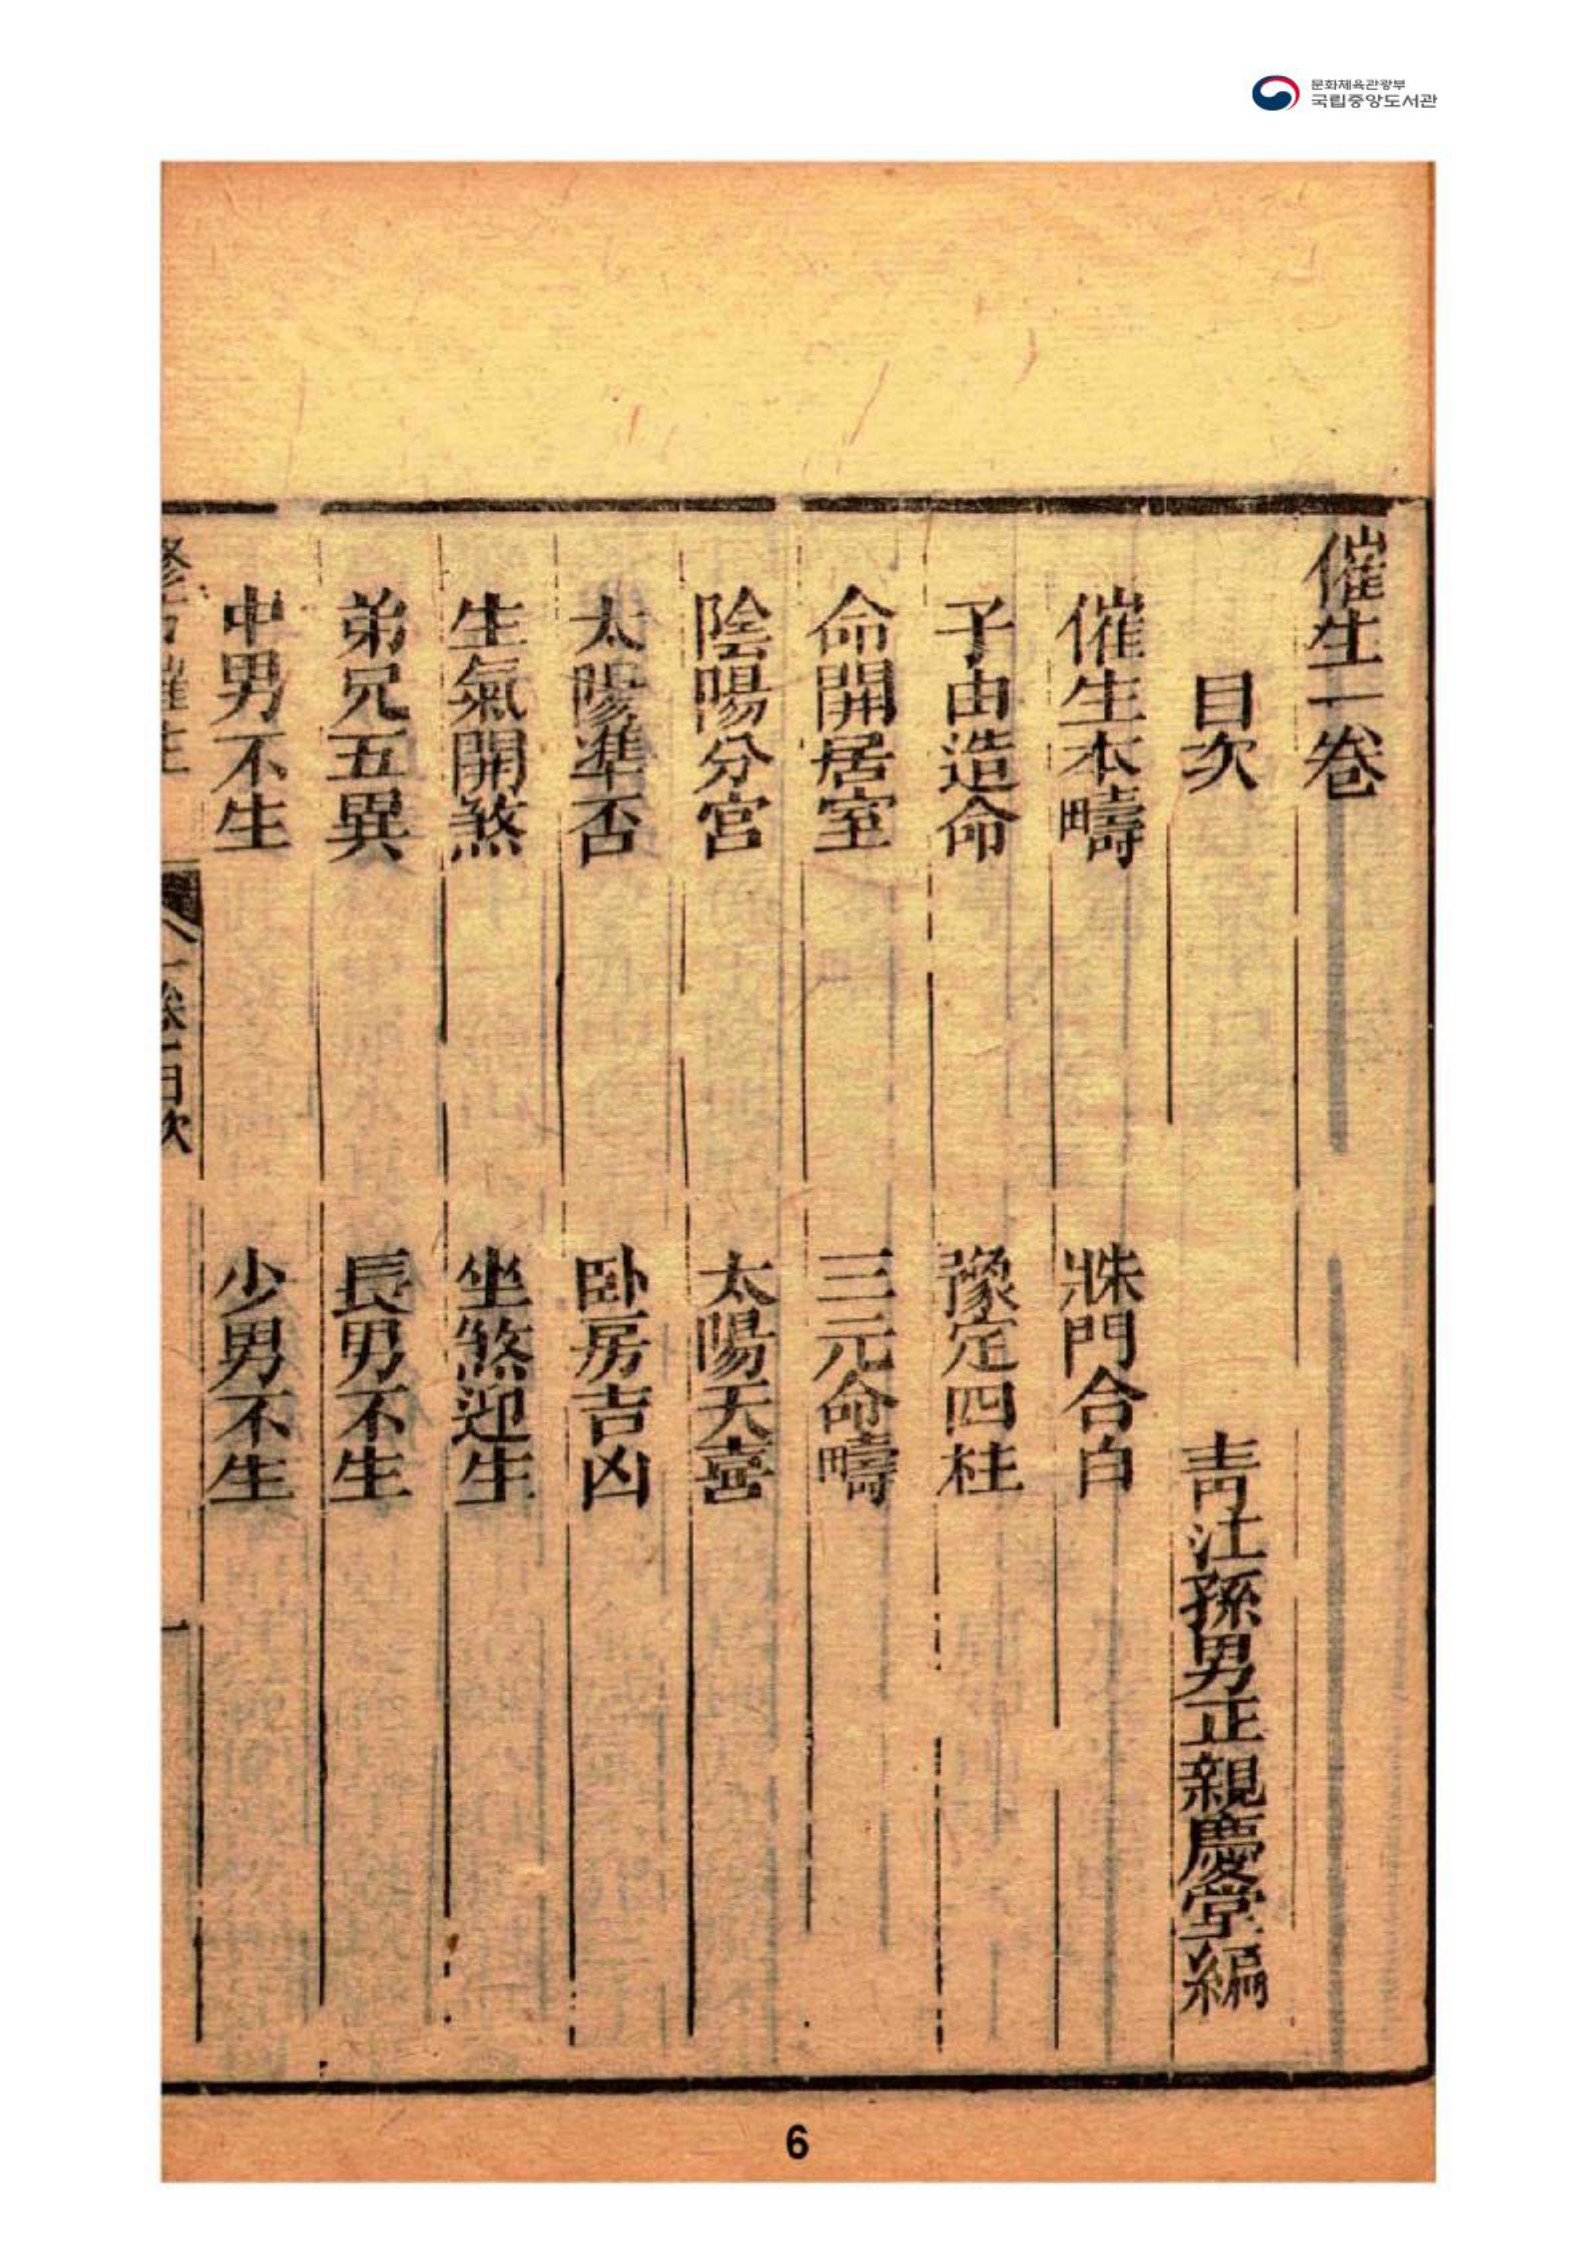 문화체육관광부
국립중앙도서관
催生一卷
目次 青江孫男正親慶堂編
催生本疇 牀門合白
子由造命 豫定四柱
命開居室 三元命疇
陰陽分宮 太陽天喜
太陽準否 卧房吉凶
生氣開煞 坐煞迎生
弟兄五異 長男不生
中男不生 少男不生
6